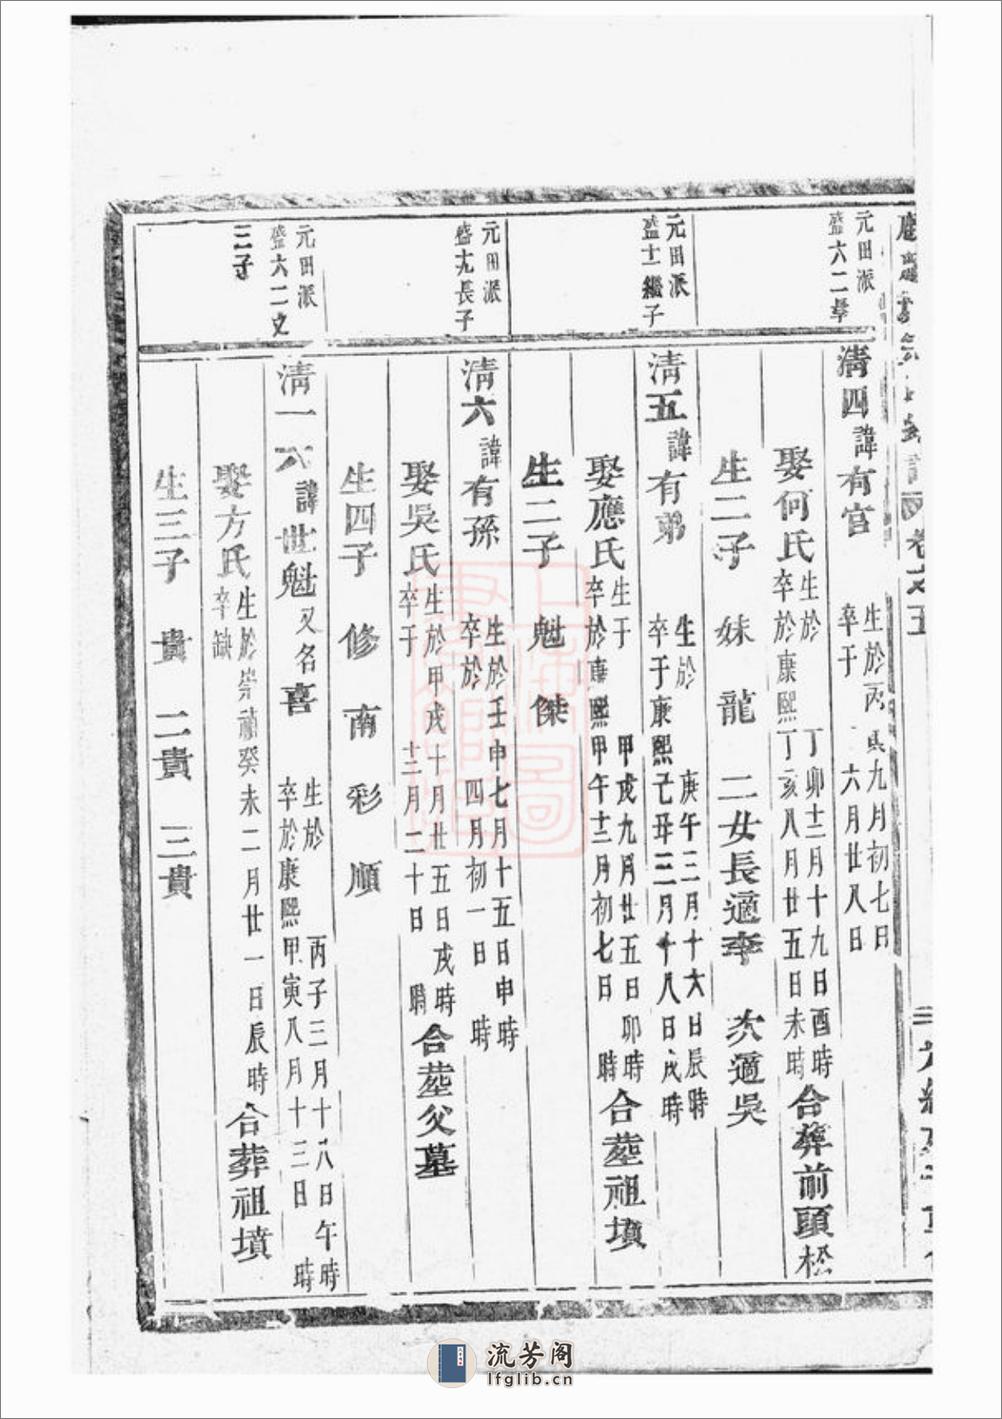 卷之五
元田派
盛六二
清四諱有官
生於丙寅九月初七日
卒于 六月廿八日
娶何氏
生於 丁卯十二月十九日酉時
卒於康熙丁亥八月廿五日未時
合葬前頭松
生二子 妹 龍 二女長適李 次適吳
元田派
盛十一繼子
清五諱有弟
生於 庚午三月十六日辰時
卒于康熙己丑三月十八日戌時
娶應氏
生于 甲戌九月廿五日卯時
卒於康熙甲午十二月初七日 時
合塟祖墳
生二子 魁 傑
元田派
盛九長子
清六諱有孫
生於壬申七月十五日申時
卒於 四月初一日 時
娶吳氏
生於甲戌十月廿五日戌時
卒于 十二月二十日 時
合塟父墓
生四子 修 南 彩 順
元田派
盛六二
三子
清一六諱世魁又名喜
生於 丙子三月十八日午時
卒於康熙甲寅八月十三日 時
娶方氏
生於崇禎癸未二月廿一日辰時
卒缺
合葬祖墳
生三子 貴 二貴 三貴
流芳阁
lfglib.cn